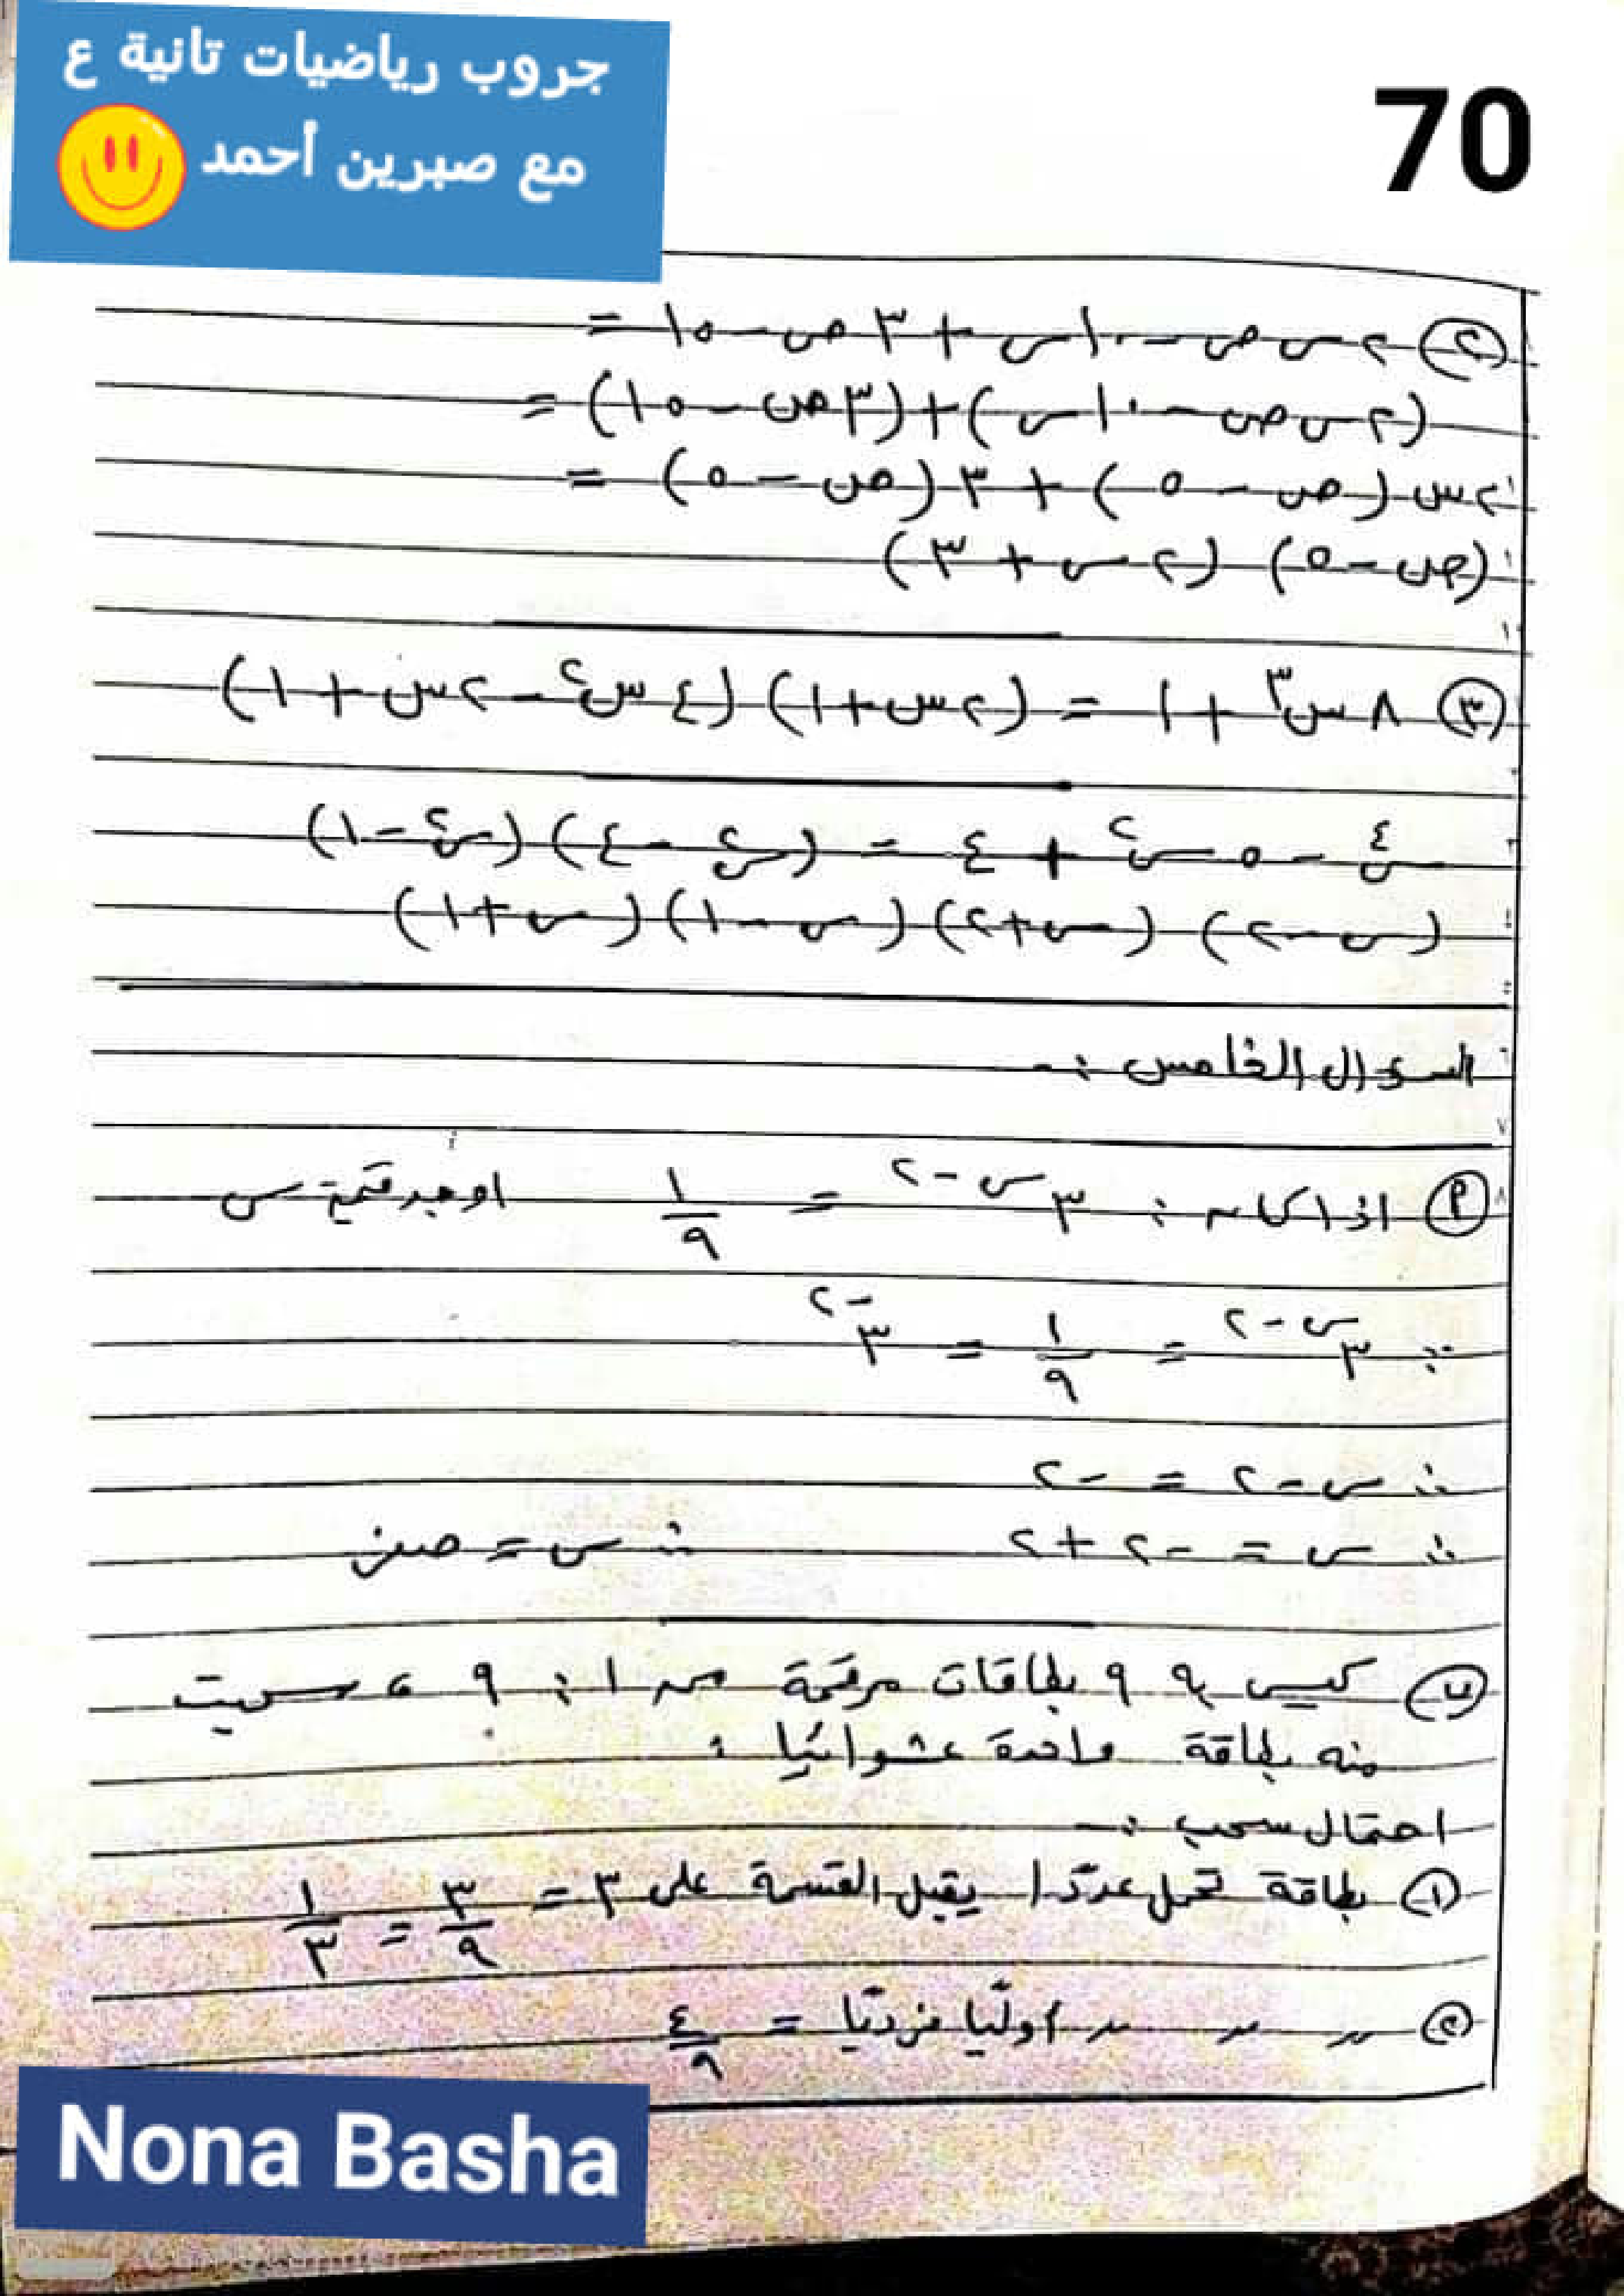 جروب رياضيات تانية ع
مع صبرين أحمد
70
(٢) ٢ س ص - ١٠ س + ٣ ص - ١٥ =
(٢ س ص - ١٠ س) + (٣ ص - ١٥) =
٢ س (ص - ٥) + ٣ (ص - ٥) =
(ص - ٥) (٢ س + ٣)
(٣) ٨ س٣ + ١ = (٢ س + ١) (٤ س٢ - ٢ س + ١)
س٤ - ٥ س٢ + ٤ = (س٢ - ٤) (س٢ - ١)
(س - ٢) (س + ٢) (س - ١) (س + ١)
السؤال الخامس :-
(أ) اذا كان : ٣س-٢ = ١/٩ اوجد قيمة س
∵ ٣س-٢ = ١/٩ = ٣-٢
∴ س - ٢ = -٢
∴ س = -٢ + ٢ ∴ س = صفر
(ب) كيس به ٩ بطاقات مرقمة من ١ : ٩ ، سحبت
منه بطاقة واحدة عشوائيا :
احتمال سحب :-
(١) بطاقة تحمل عددًا يقبل القسمة على ٣ = ٣/٩ = ١/٣
(٢) 〃 〃 〃 اوليًا فرديًا = ٤/٩
Nona Basha